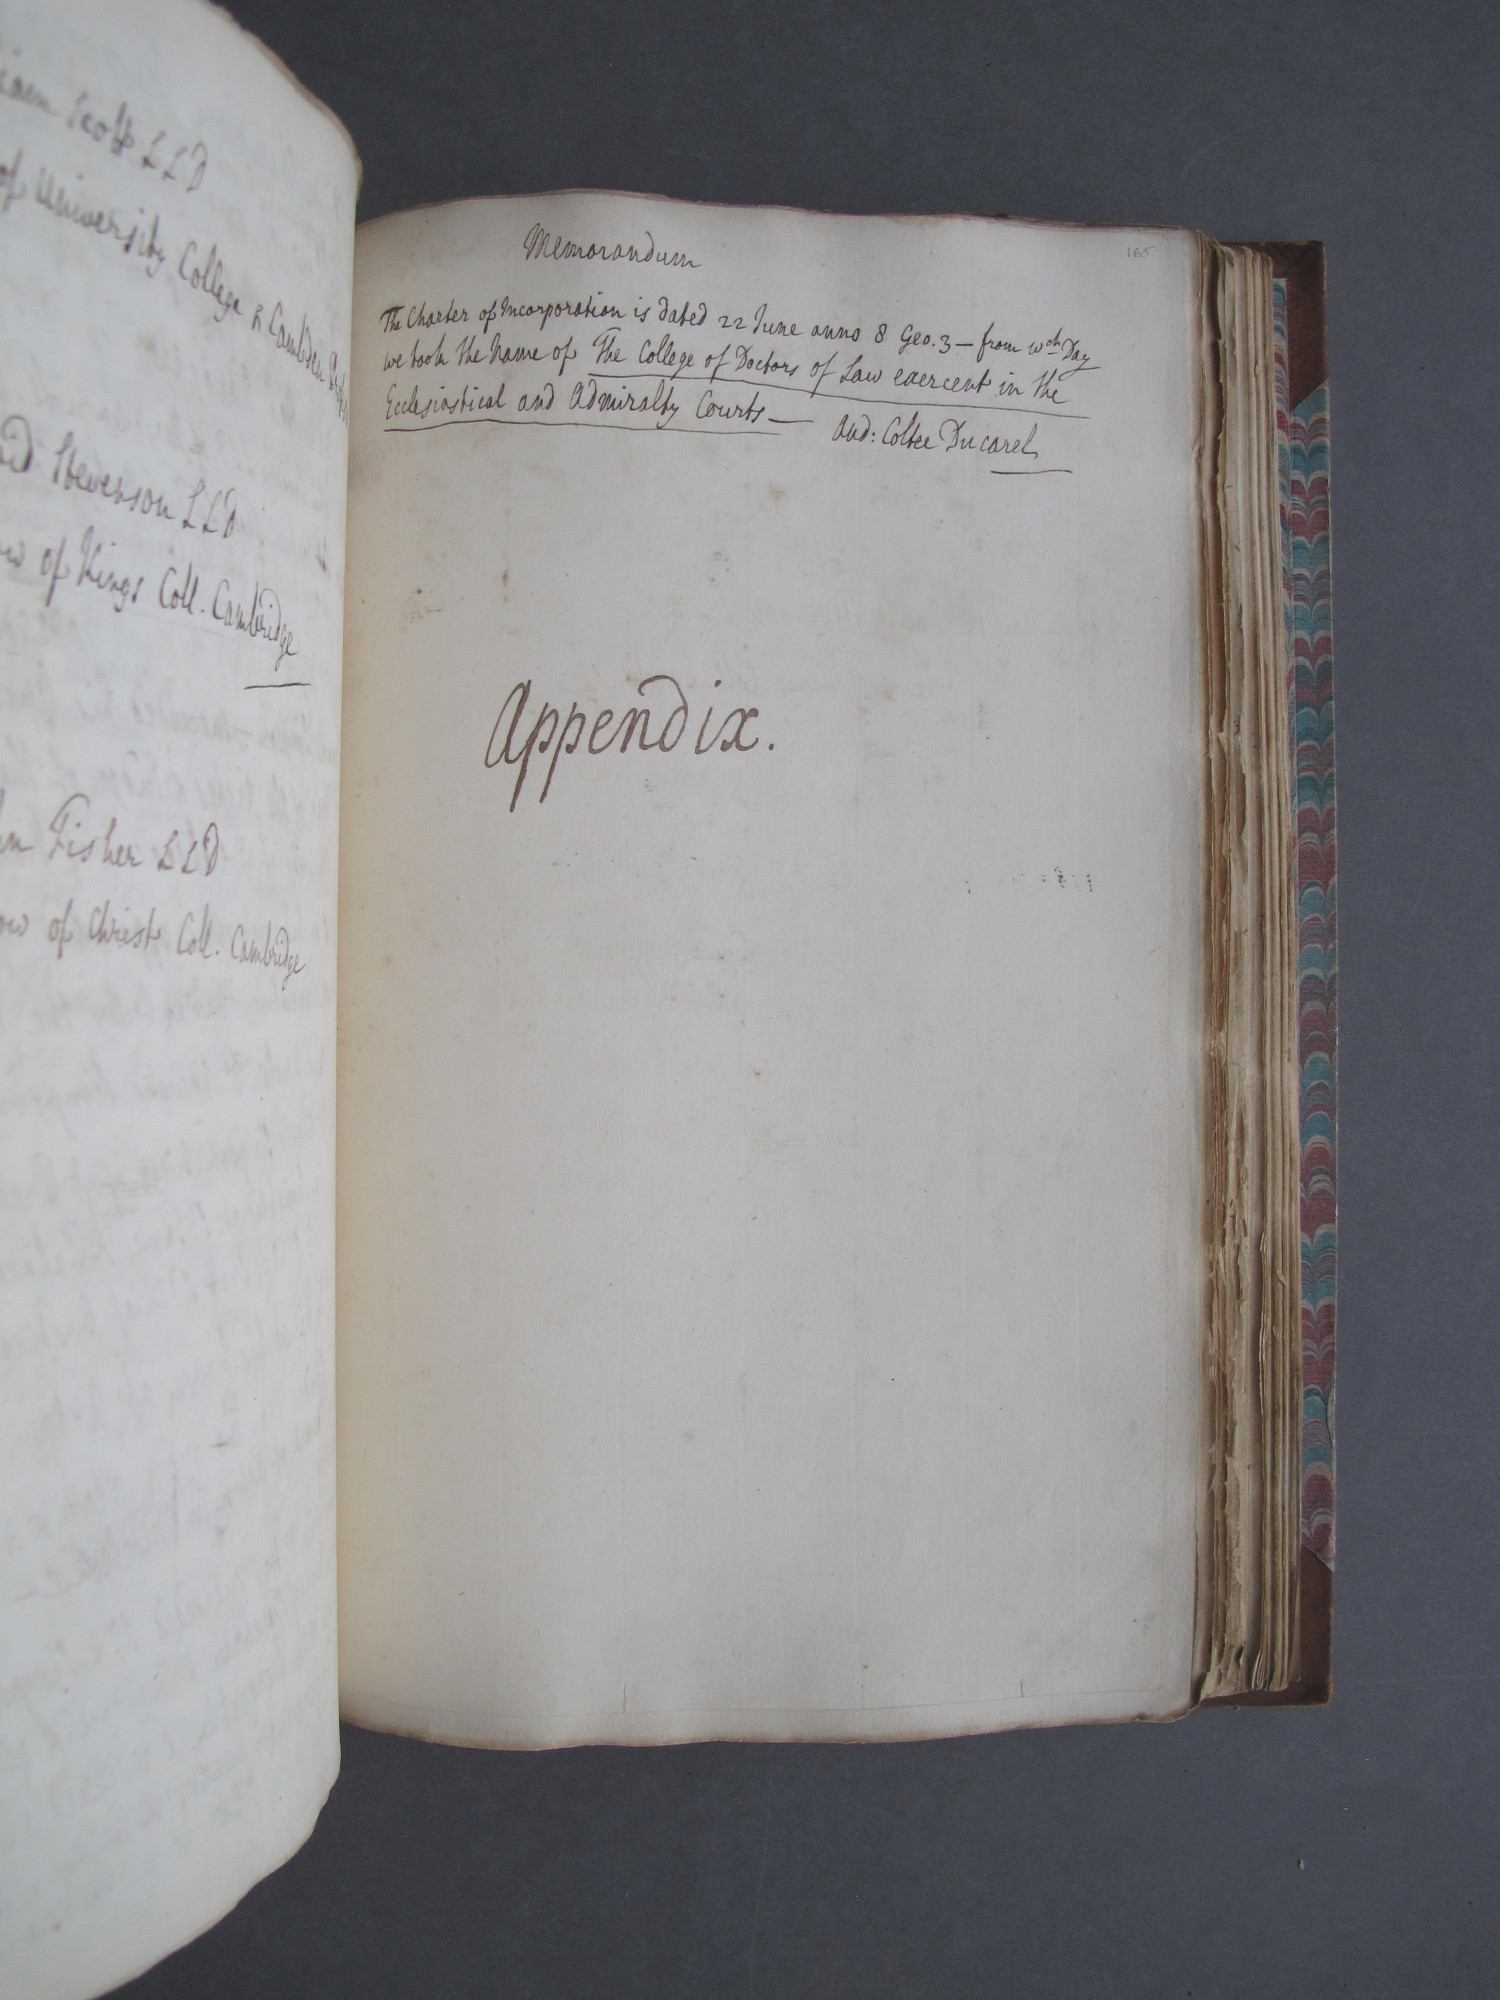 Scott LLD
of University College & Cambden
Stevenson LLD
of Kings Coll. Cambridge
Fisher LLD
of Christ Coll. Cambridge
165
Memorandum
The Charter of Incorporation is dated 22 June anno 8 Geo. 3 — from wch Day
we took the Name of The College of Doctors of Law exercent in the
Ecclesiastical and Admiralty Courts —
And: Coltee Ducarel
Appendix.